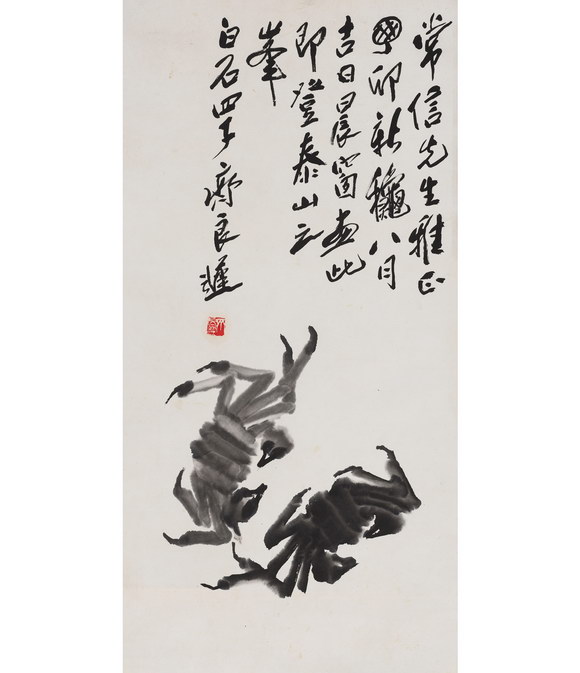 常信先生雅正
卯新龝八月
吉日晨窗画此
即登泰山
峯
白石四子齊良遲